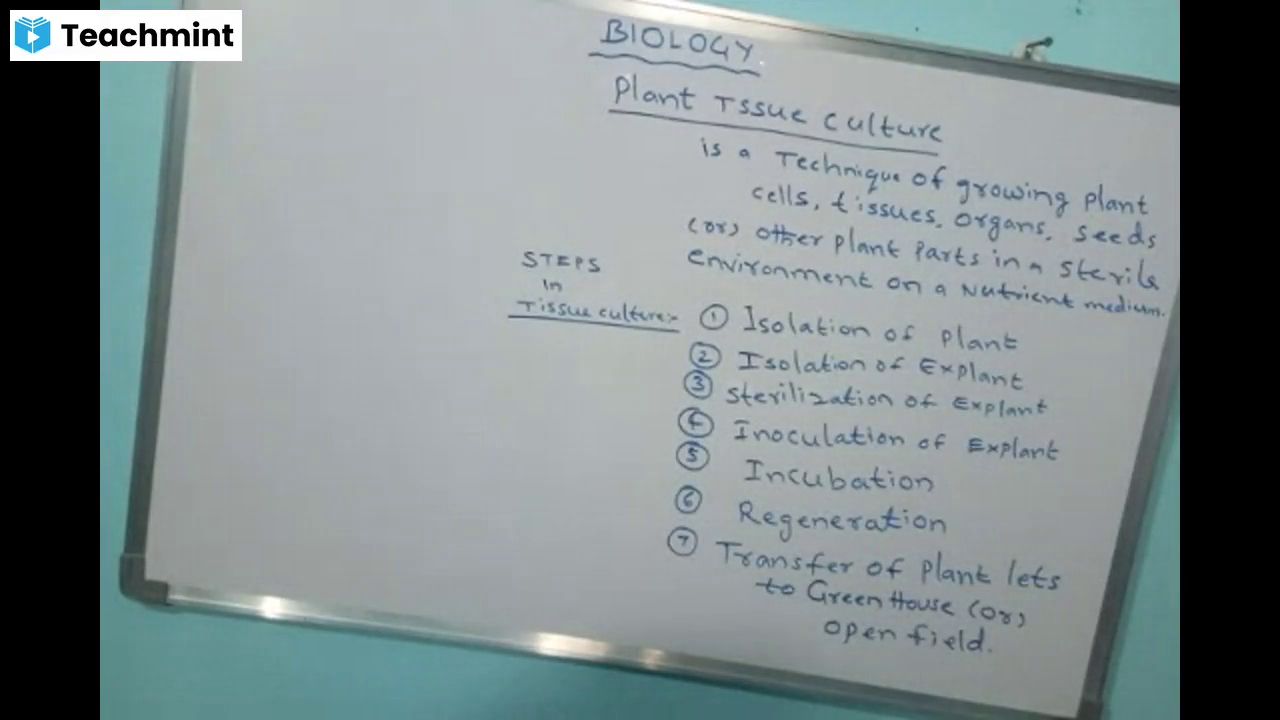 Teachmint
BIOLOGY
Plant Tssue culture
is a Technique of growing plant
cells, tissues, organs, seeds
(or) other plant parts in a sterile
environment on a Nutrient medium.
STEPS
in
Tissue culture:-
① Isolation of plant
② Isolation of Explant
③ Sterilization of Explant
④ Inoculation of Explant
⑤ Incubation
⑥ Regeneration
⑦ Transfer of plant lets
to Green House (or)
open field.